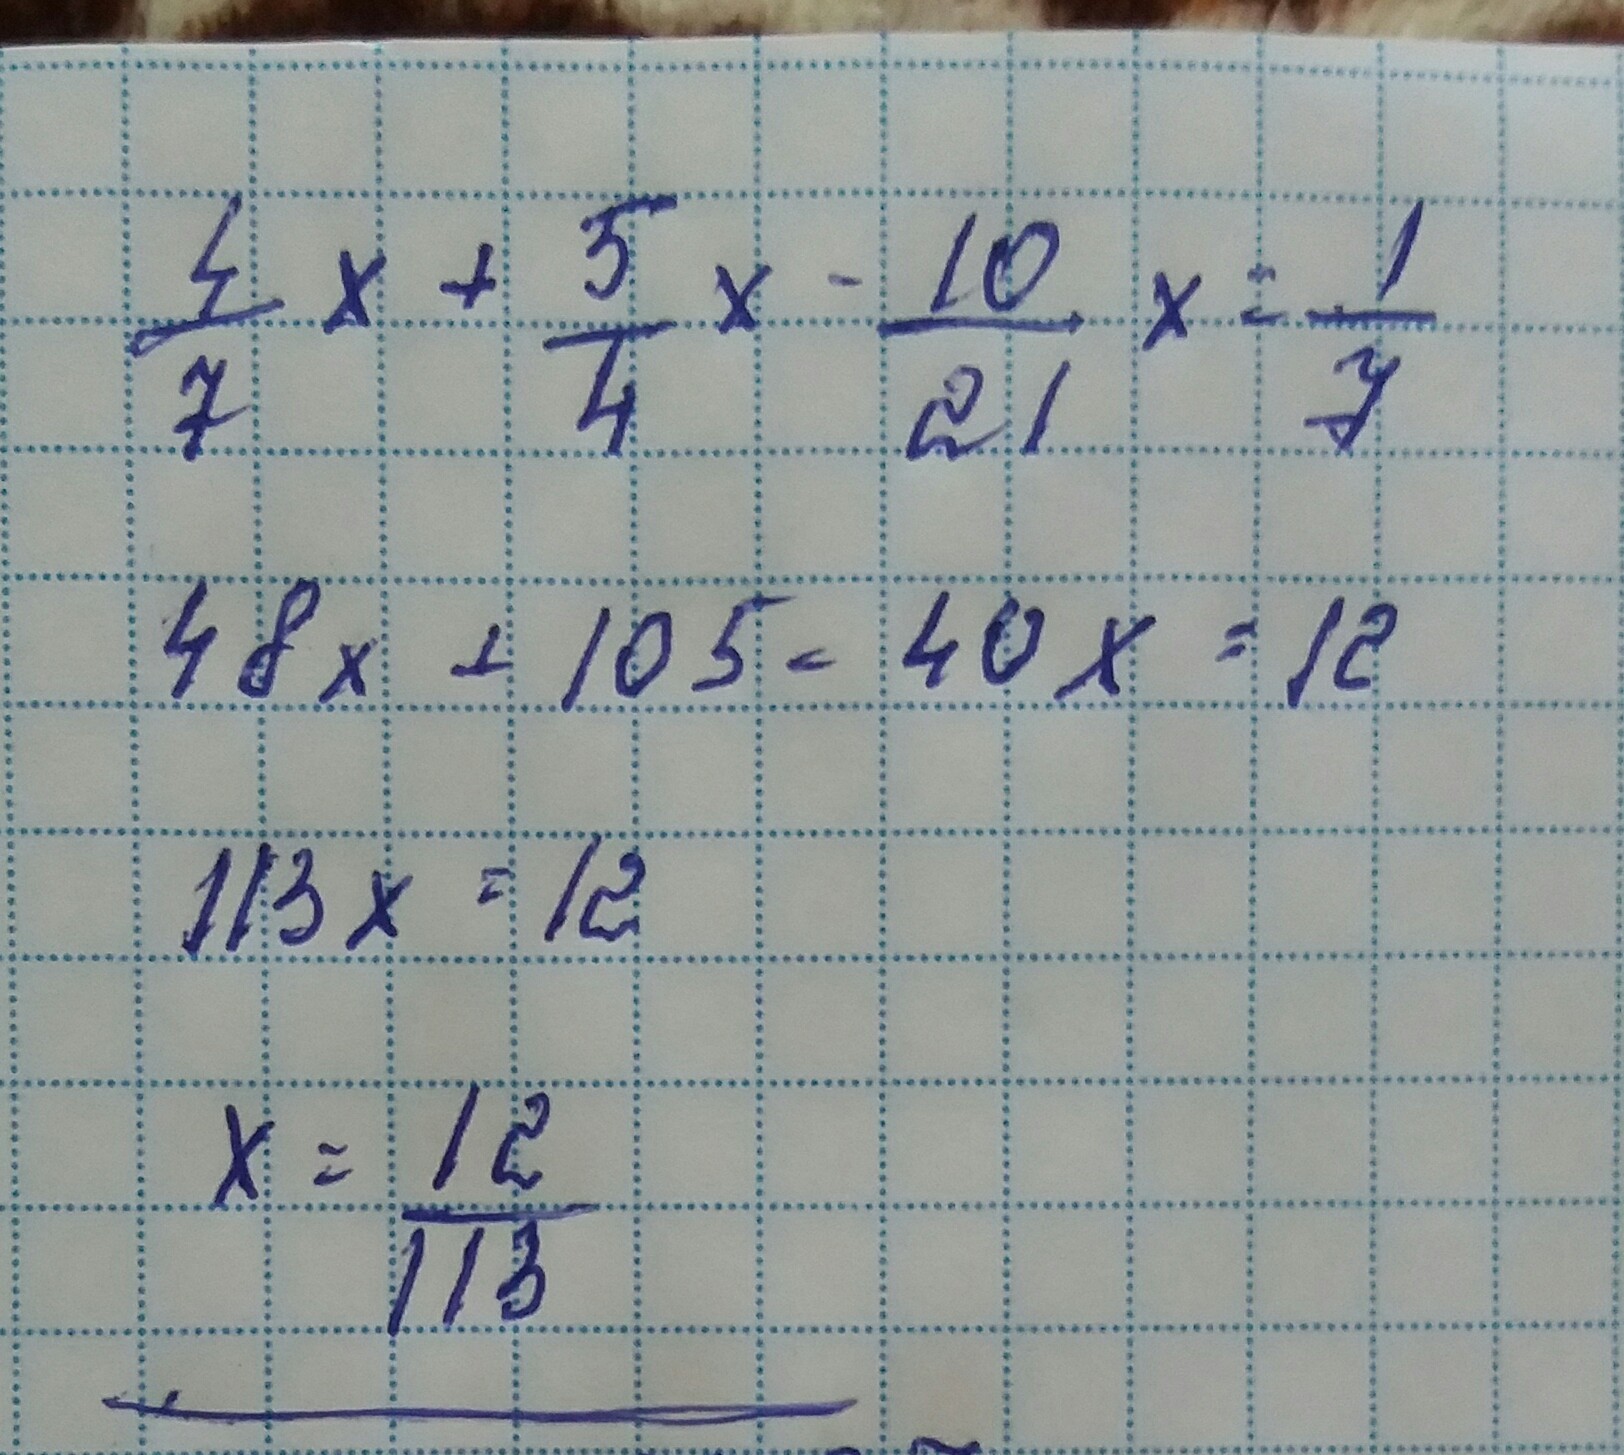 4/7 x + 5/4 x - 10/21 x = 1/7
48x + 105 - 40x = 12
113x = 12
x = 12/113